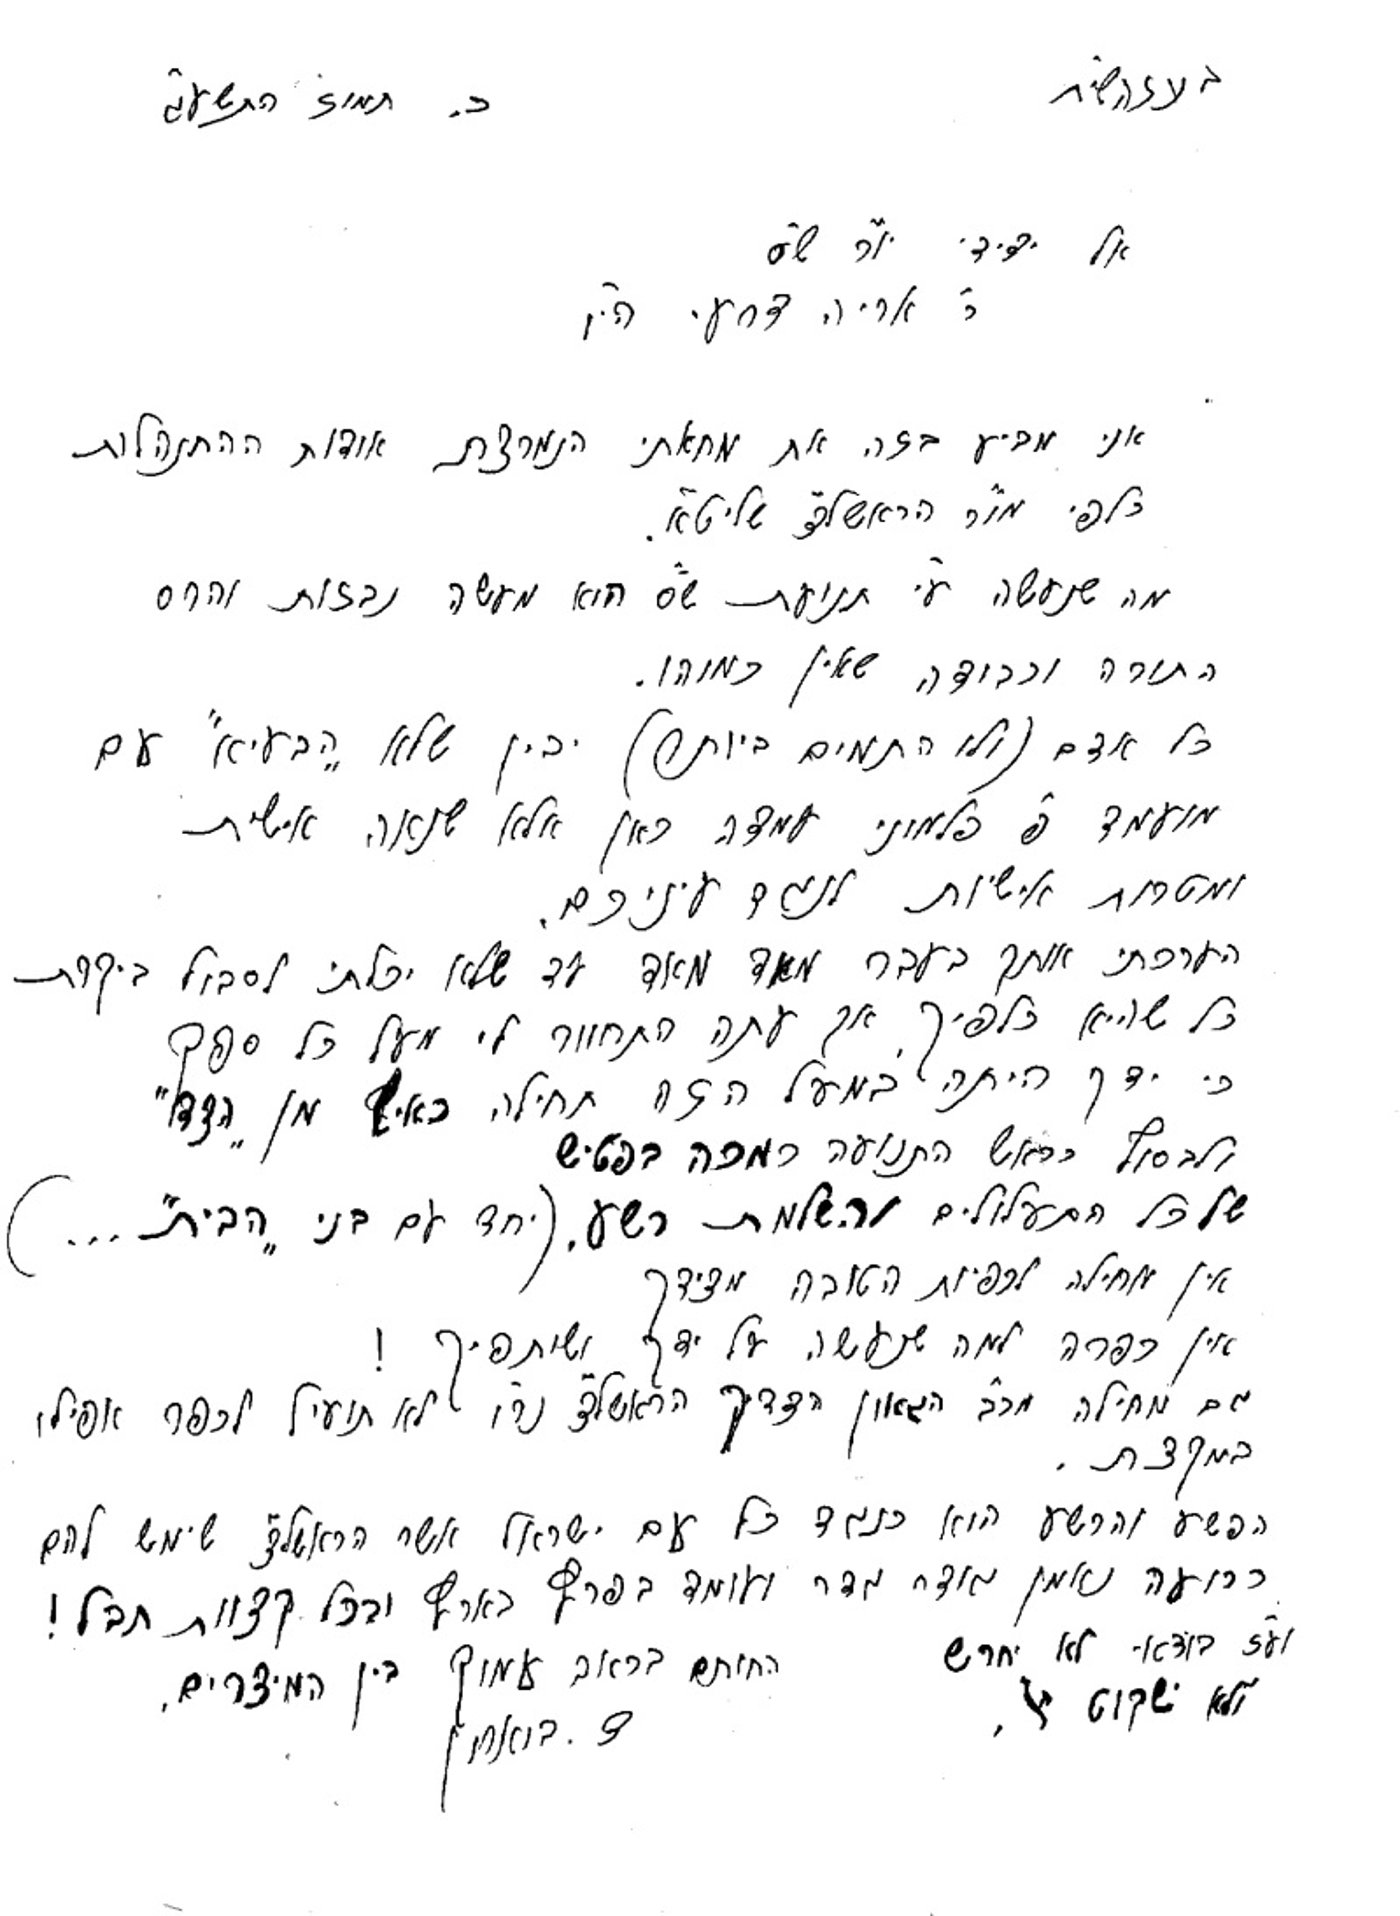 בעזהשי"ת
כ. תמוז התשע"ג
אל ידידי יו"ר ש"ס
ר' אריה דרעי הי"ו
אני מביע בזה את מחאתי הנמרצת אודות ההתנהלות
כלפי מו"ר הראשל"צ שליט"א.
מה שנעשה ע"י תנועת ש"ס הוא מעשה נבזות והרס
התורה וכבודה שאין כמוהו.
כל אדם (ולו התמים ביותר) יבין שלא "הבעיא" עם
מועמד פ' פלמוני עמדה כאן אלא שנאה אישית
ומטרות אישיות לנגד עיניכם.
הערכתי אותך בעבר מאד מאד עד שלא יכלתי לסבול ביקורת
כל שהיא כלפיך, אך עתה התחוור לי מעל כל ספק
כי ידך היתה במעל הזה תחילה כאיש מן "הצד"
ולבסוף כראש התנועה כמכה בפטיש
של כל התעלולים והשלמת רשע. (יחד עם בני "הבית" ...)
אין מחילה לכפיות הטובה מצידך
אין כפרה למה שנעשה על ידך ושותפיך !
גם מחילה מרב הגאון הצדיק הראשל"צ נר"ו לא תועיל לכפר אפילו
במקצת.
הפשע והרשע הוא כנגד כל עם ישראל אשר הראשל"צ שימש להם
כרועה נאמן גודר גדר ועומד בפרץ בארץ ובכל קצוות תבל !
וע"ז בודאי לא יחרש
ולא ישקוט
החותם בכאב עמוק בין המיצרים.
ד. בוארון